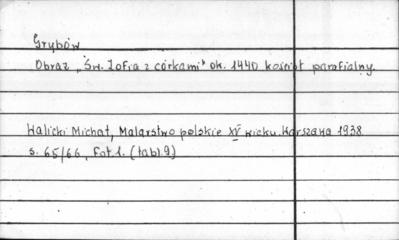 Grybów
Obraz „Św. Zofia z córkami" ok. 1440 kościół parafialny.
Walicki Michał, Malarstwo polskie XV wieku. Warszawa 1938
s. 65/66, Fot. 1. (tabl. 9)